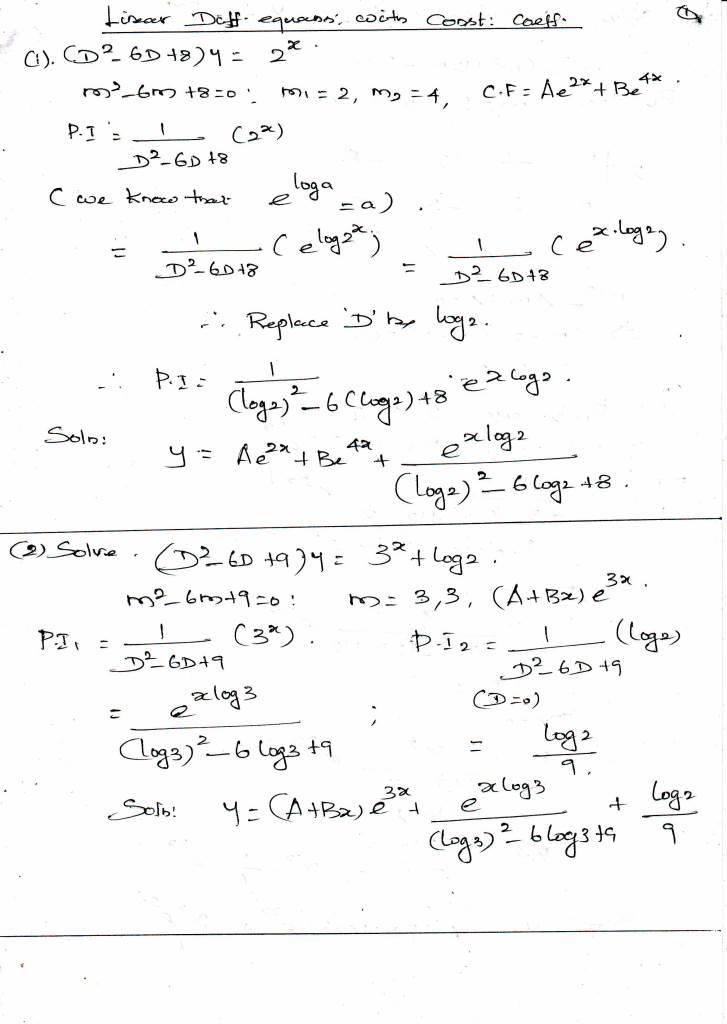 Linear Diff. equans: with Const: Coeff. ①
(1). (D² - 6D + 8) y = 2ˣ.
m² - 6m + 8 = 0 : m₁ = 2, m₂ = 4, C.F = Ae²ˣ + Be⁴ˣ.
P.I = 1/(D² - 6D + 8) (2ˣ)
( we know that e^(log a) = a ) .
= 1/(D² - 6D + 8) ( e^(log 2ˣ) ) = 1/(D² - 6D + 8) ( e^(x·log 2) ).
∴ Replace 'D' by log 2.
∴ P.I = 1/((log 2)² - 6(log 2) + 8) · e^(x log 2).
Soln: y = Ae²ˣ + Be⁴ˣ + e^(x log 2)/((log 2)² - 6 log 2 + 8) .
(2) Solve . (D² - 6D + 9) y = 3ˣ + log 2 .
m² - 6m + 9 = 0 : m = 3, 3, (A + Bx) e³ˣ.
P.I₁ = 1/(D² - 6D + 9) (3ˣ) . P.I₂ = 1/(D² - 6D + 9) (log 2)
(D = 0)
= e^(x log 3)/((log 3)² - 6 log 3 + 9) ; = log 2/9 .
Soln: y = (A + Bx) e³ˣ + e^(x log 3)/((log 3)² - 6 log 3 + 9) + log 2/9